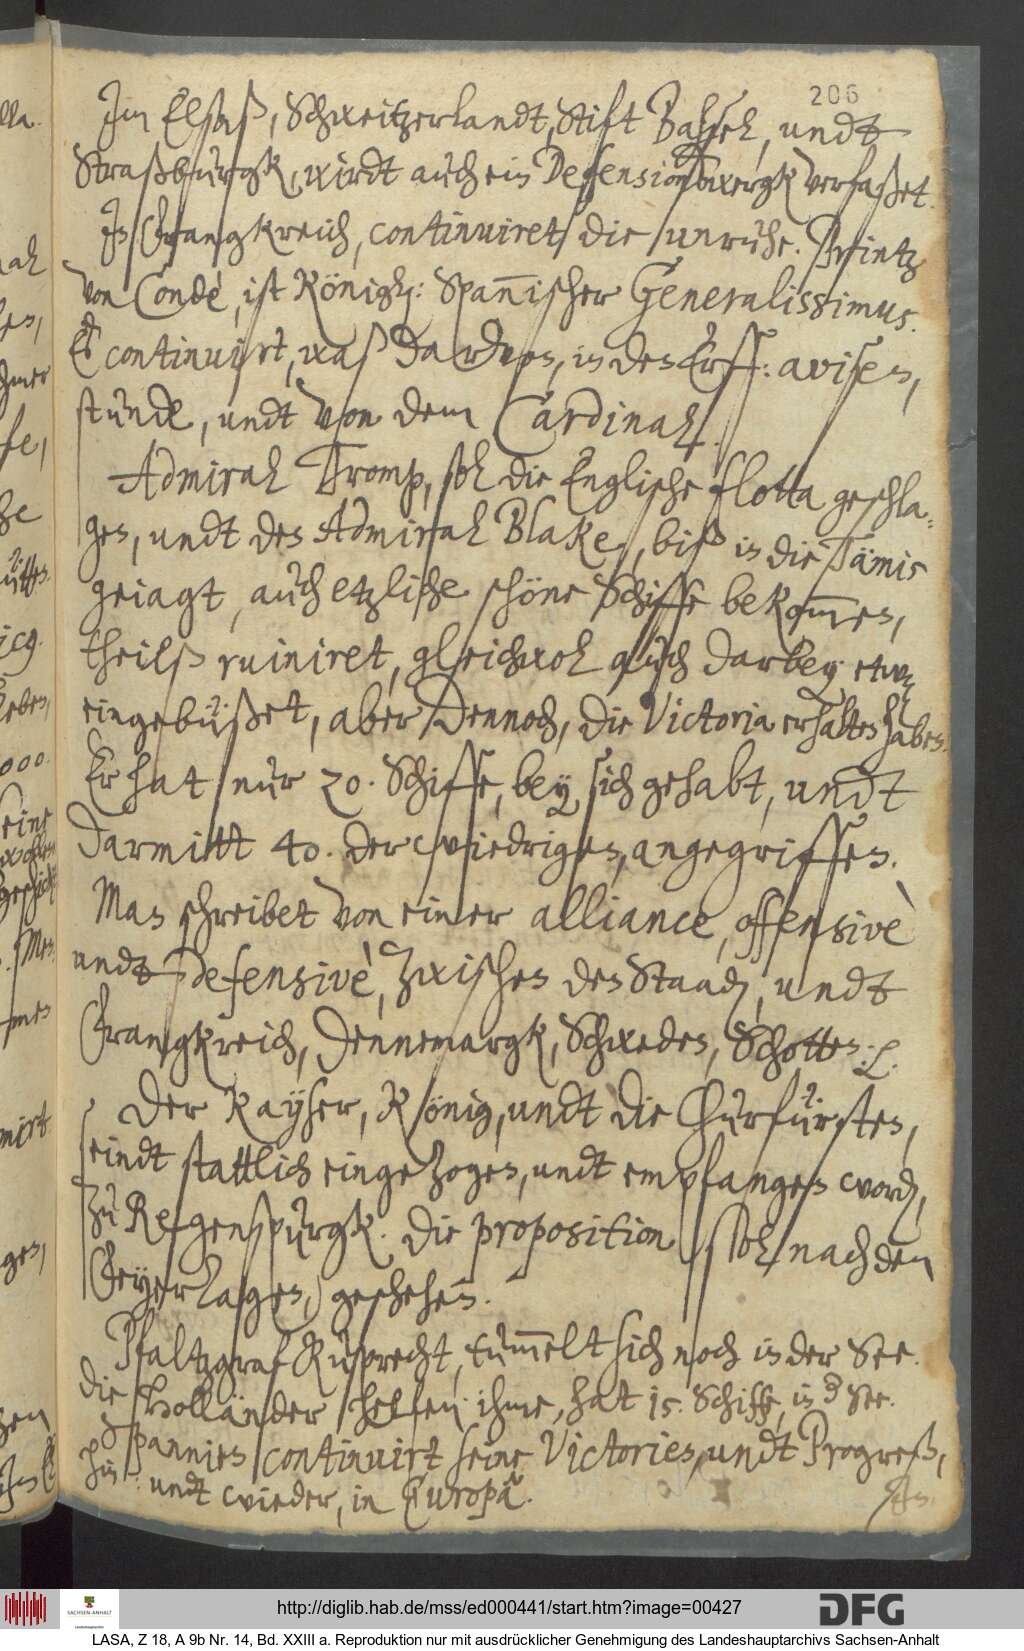 206
Im Elsaß, Schweitzerlandt, Stift Basel, undt
Straßburgk, wirdt auch ein Defensionßwergk verfaßet.
In Frangkreich, continuiret die unruhe. Printz
von Condè, ist Königl: Spannischer Generalissimus.
Es continuirt, waß Dar von, in den Erff: avisen,
stunde, undt von dem Cardinal.
Admiral Tromp, sol die Englische flotta geschla-
gen, undt den Admiral Blake, biß in die Tämis
geiagt, auch etzliche schöne Schiffe bekommen,
theilß ruiniret, gleichwol auch darbey etwaß
eingebüßet, aber dennoch, die Victoria erhalten haben.
Er hat nur 20. Schiffe, bey sich gehabt, undt
darmitt 40. der wiedrigen, angegriffen.
Man schreibet von einer alliance, offensivè
undt Defensivè, zwischen den Staaden, undt
Frangkreich, Dennemargk, Schweden, Schotten: etc.
Der Kayser, König, undt die Churfürsten,
seindt stattlich eingezogen, undt empfangen worden,
zu Regenspurgk. Die proposition sol nach den
Feyertagen, geschehen.
Pfaltzgraf Ruprecht, tummelt sich noch in der See.
die Holländer helfen ihme, hat 15. Schiffe, in der See.
Spannien continuirt seine Victorien, undt Progreß,
hin undt wieder, in Europa.
http://diglib.hab.de/mss/ed000441/start.htm?image=00427
DFG
SACHSEN-ANHALT
LASA, Z 18, A 9b Nr. 14, Bd. XXIII a. Reproduktion nur mit ausdrücklicher Genehmigung des Landeshauptarchivs Sachsen-Anhalt